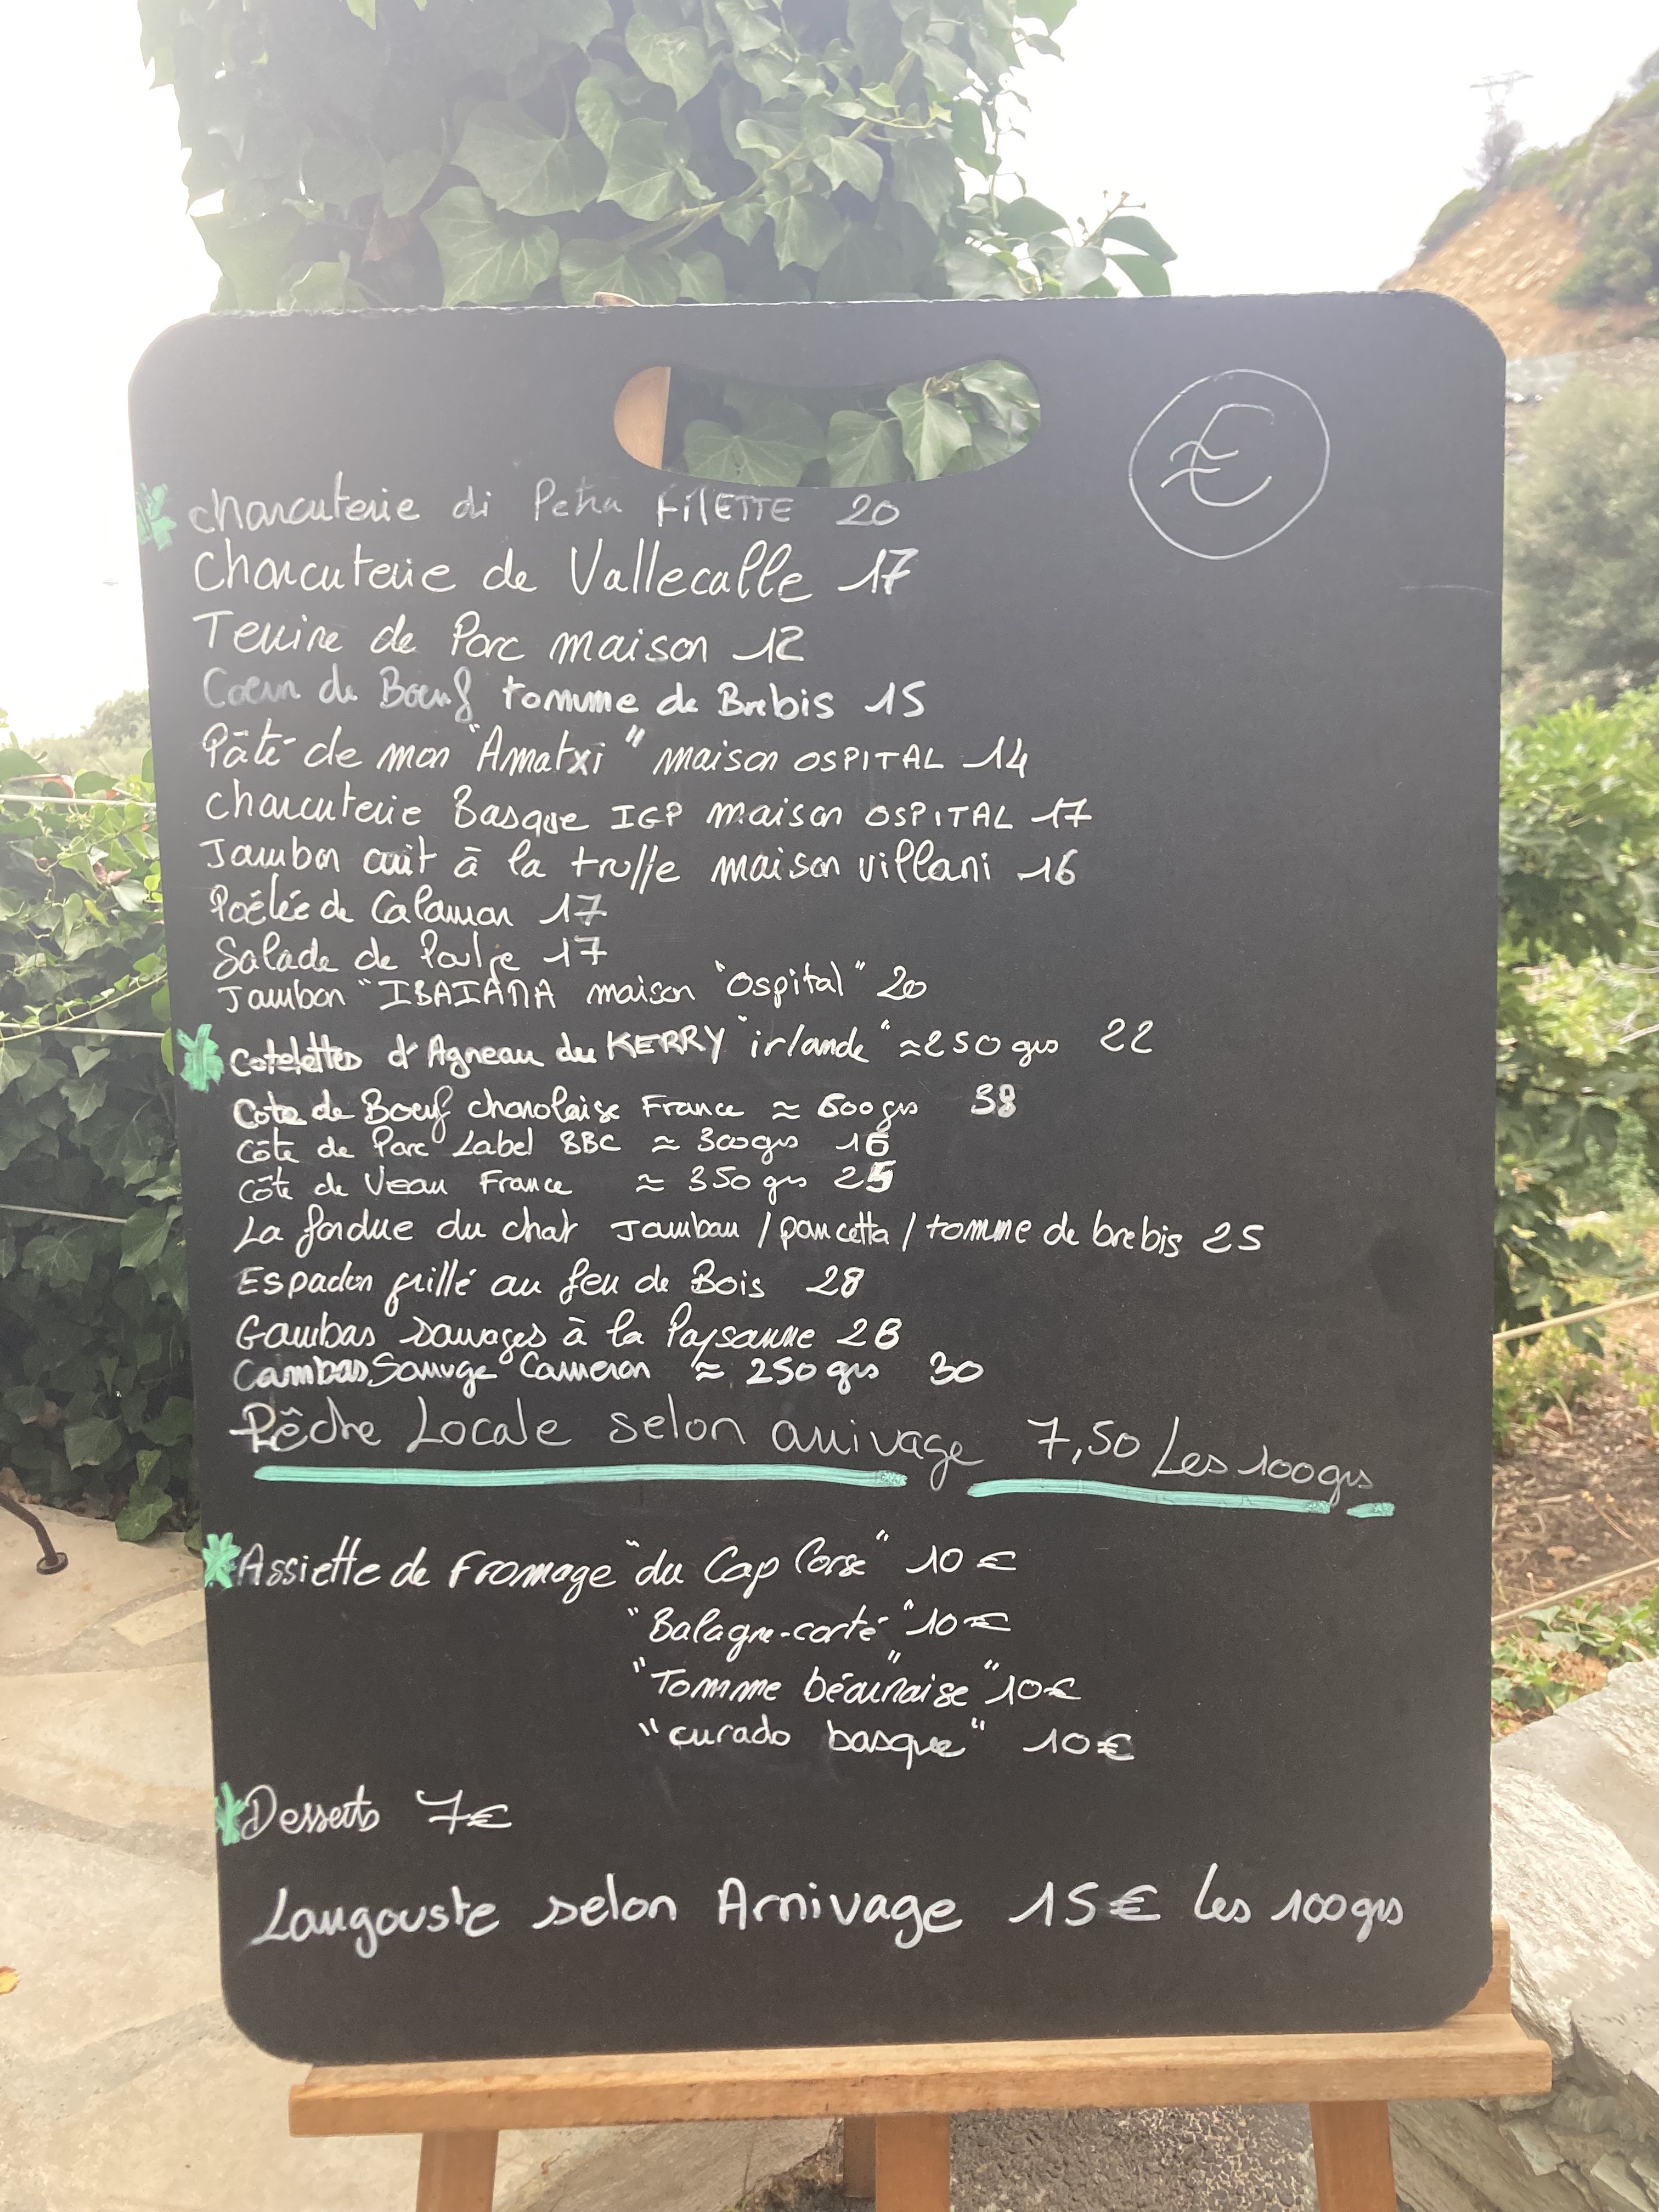 €
charcuterie di Petra FilETTE 20
Charcuterie de Vallecalle 17
Terrine de Porc maison 12
Coeur de Boeuf tomme de Brebis 15
Pâté de mon "Amatxi" maison OSPITAL 14
Charcuterie Basque IGP maison OSPITAL 17
Jambon cuit à la truffe maison villani 16
Poêlée de Calamar 17
Salade de Poulpe 17
Jambon "IBAIAMA maison "Ospital" 20
Cotelettes d'Agneau du KERRY "irlande" ≈250 grs 22
Cote de Boeuf charolaise France ≈ 600 grs 38
Côte de Porc Label BBC ≈ 300grs 16
Côte de Veau France ≈ 350 grs 25
La fondue du chat Jambon / pancetta / tomme de brebis 25
Espadon grillé au feu de Bois 28
Gambas sauvages à la Paysanne 26
Gambas Sauvge Cameron ≈ 250 grs 30
Pêche Locale selon arrivage 7,50 Les 100grs
Assiette de Fromage "du Cap Corse" 10 €
"Balagne-corté" 10 €
"Tomme béarnaise" 10€
"curado basque" 10€
Desserts 7€
Langouste selon Arrivage 15€ les 100grs